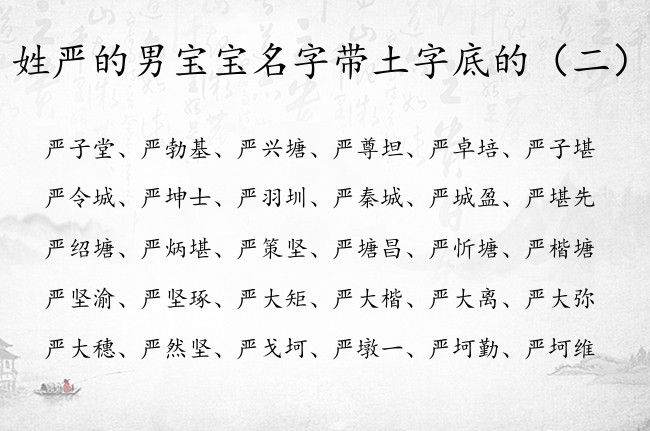 姓严的男宝宝名字带土字底的（二）
严子堂、严勃基、严兴塘、严尊坦、严卓培、严子堪
严令城、严坤士、严羽圳、严秦城、严城盈、严堪先
严绍塘、严炳堪、严策坚、严塘昌、严忻塘、严楷塘
严坚渝、严坚琢、严大矩、严大楷、严大离、严大弥
严大穗、严然坚、严戈坷、严墩一、严坷勤、严坷维